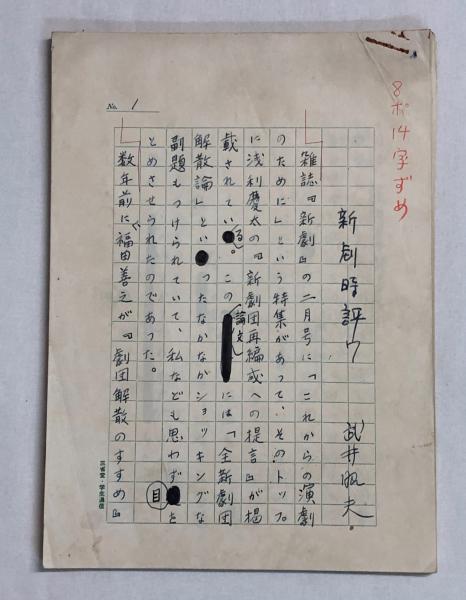 8ポ14字ずめ
No. 1
新劇時評7
武井昭夫
雑誌『新劇』の二月号に「これからの演劇
のために」という特集があって、そのトップ
に浅利慶太の『新劇団再編成への提言』が掲
載されている。この論文には「全新劇団
解散論」といったなかなかショッキングな
副題もつけられていて、私なども思わず目を
とめさせられたのであった。
数年前に、福田善之が『劇団解散のすすめ』
三省堂・学生通信